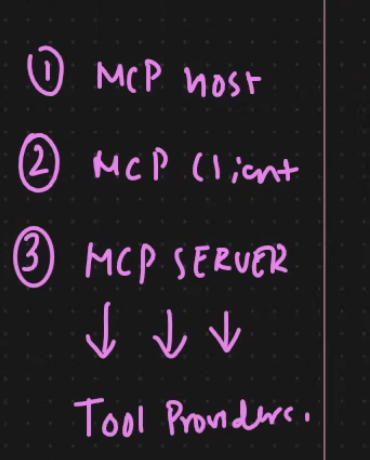 ① MCP host
② MCP Client
③ MCP SERVER
↓ ↓ ↓
Tool Providers.